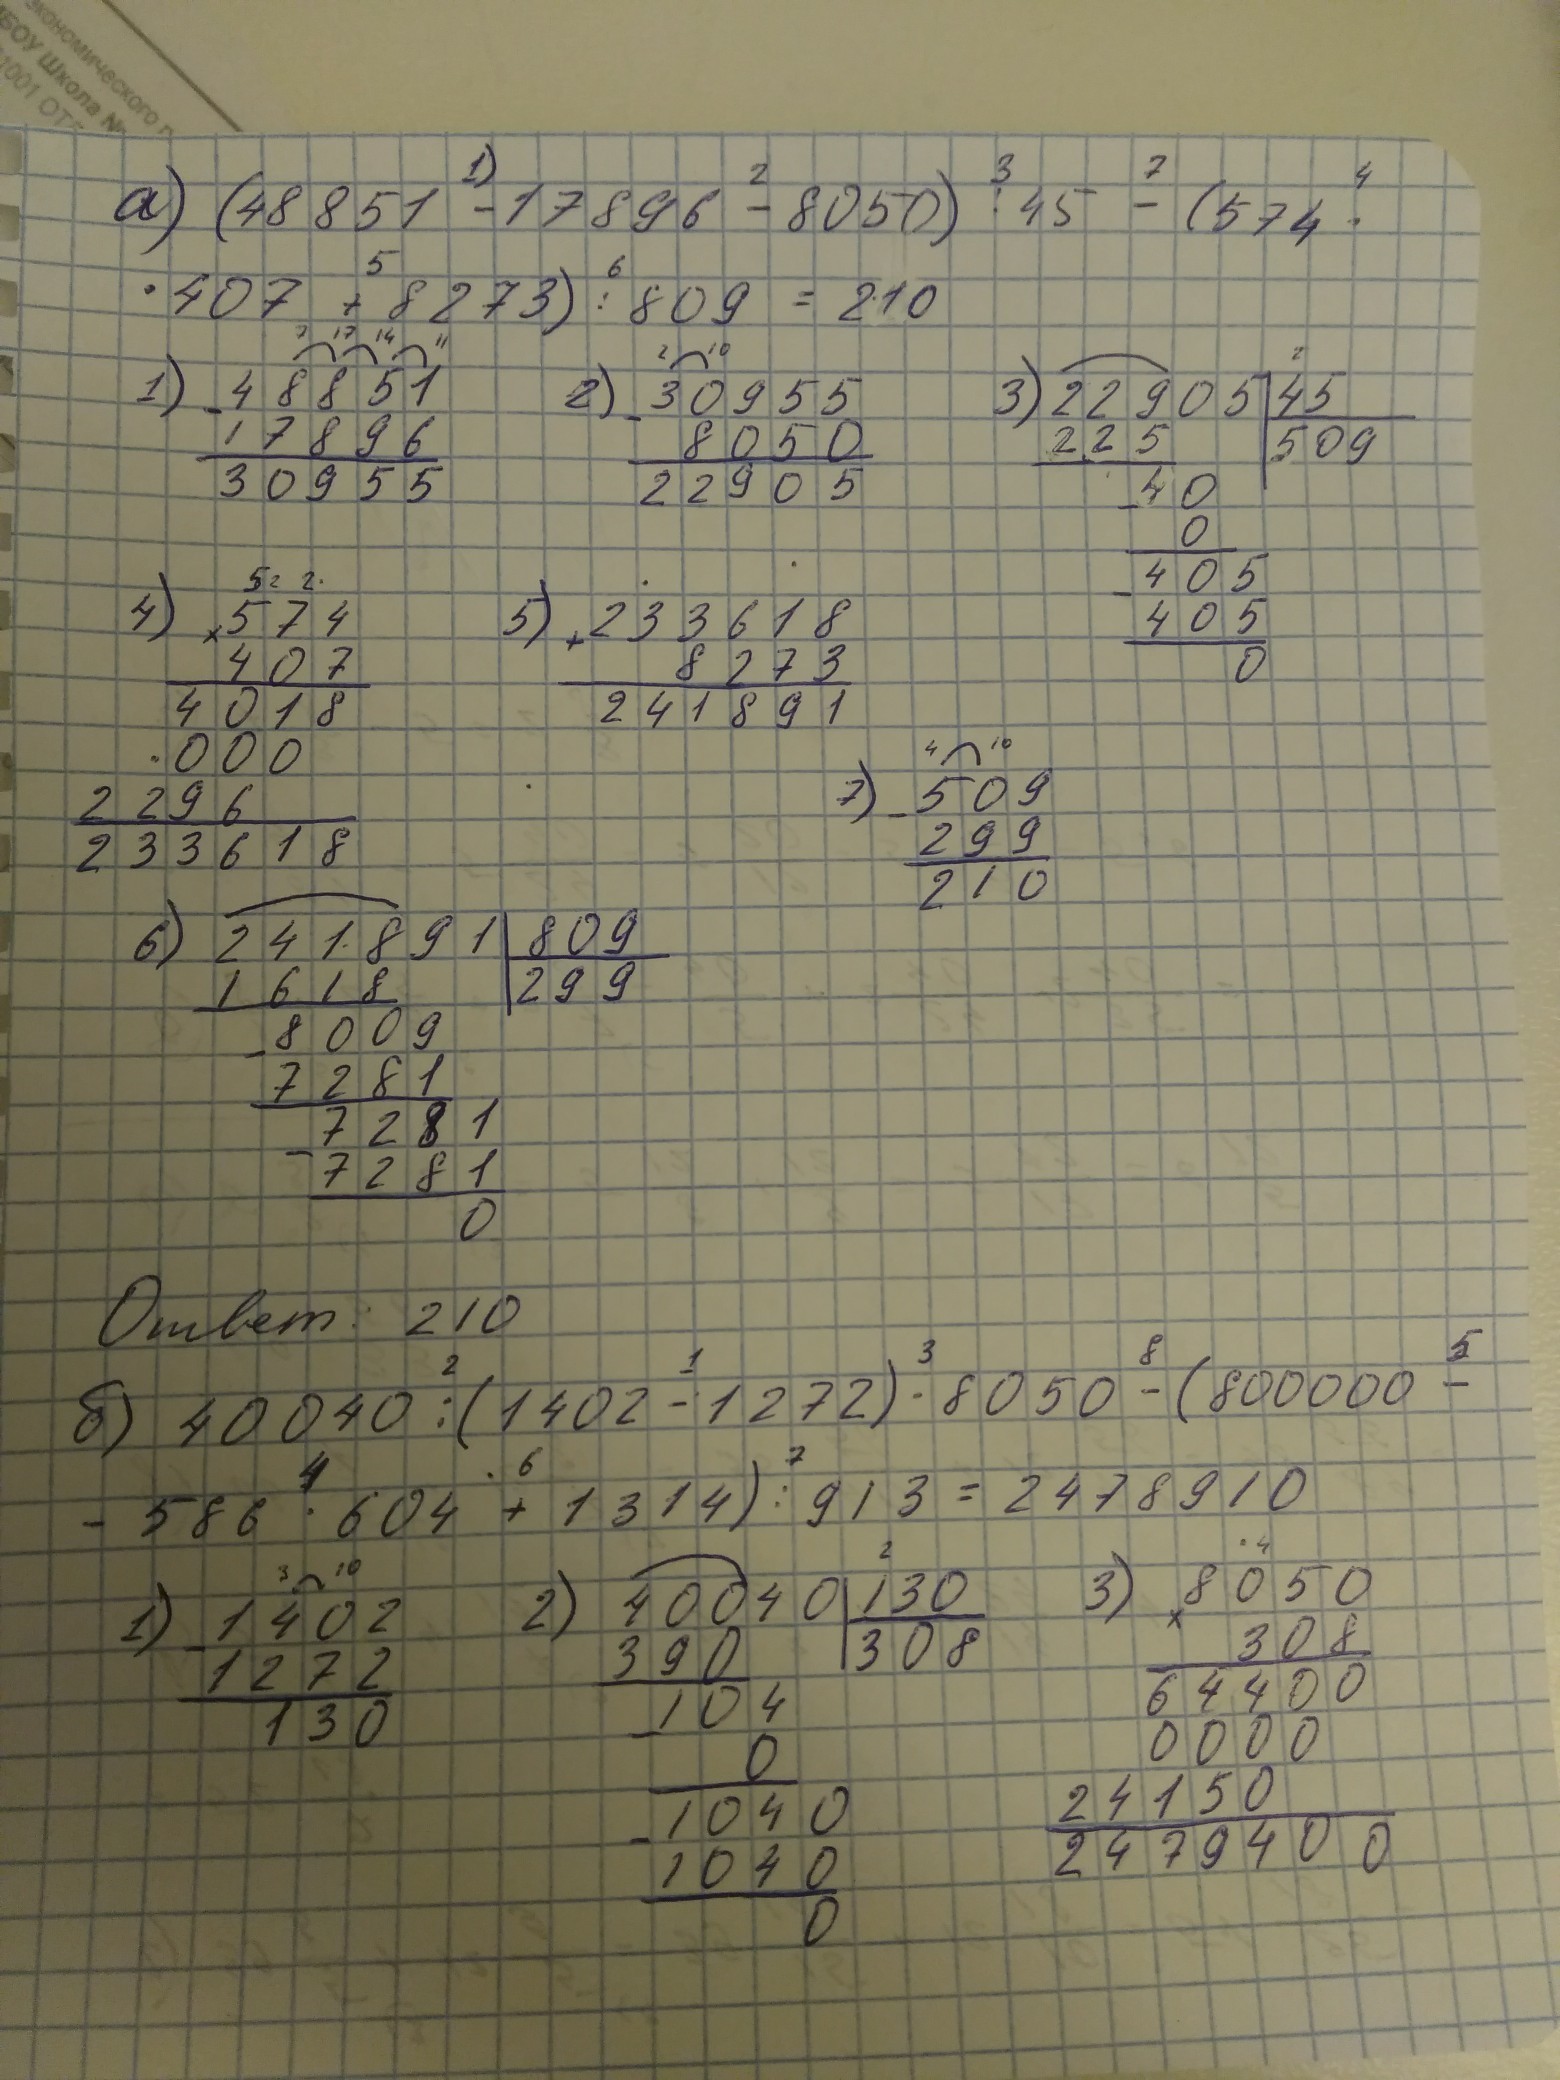 экономического
БОУ Школа №
1001 ОТ
1) 2 3 7 4
а) (48851 - 17896 - 8050) : 45 - (574 ·
5 6
· 407 + 8273) : 809 = 210
7 17 14 11 2 10 2
1) 48851 2) 30955 3) 22905 45
- 17896 - 8050 225 509
30955 22905 - 40
0
52 2 - 405
4) 574 5) 233618 405
x 407 + 8273 0
4018 241891
000 4 10
2296 7) - 509
233618 299
210
6) 241891 809
1618 299
- 8009
7281
- 7281
7281
0
Ответ: 210
2 1 3 8 5
б) 40040 : (1402 - 1272) · 8050 - (800000 -
4 6 7
- 586 · 604 + 1314) : 913 = 2478910
3 10 2 4
1) - 1402 2) 40040 130 3) 8050
1272 390 308 x 308
130 - 104 64400
0 0000
- 1040 24150
1040 2479400
0